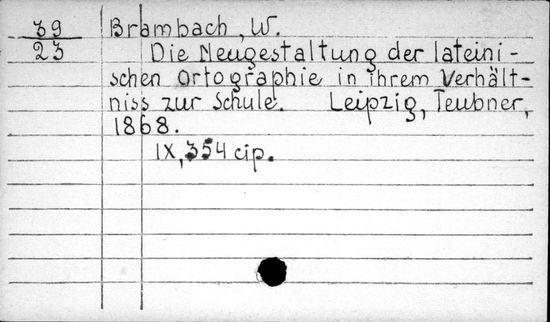 39 Brambach, W.
23 Die Neugestaltung der lateini-
schen Ortographie in ihrem Verhält-
niss zur Schule. Leipzig, Teubner,
1868.
IX, 354 cip.